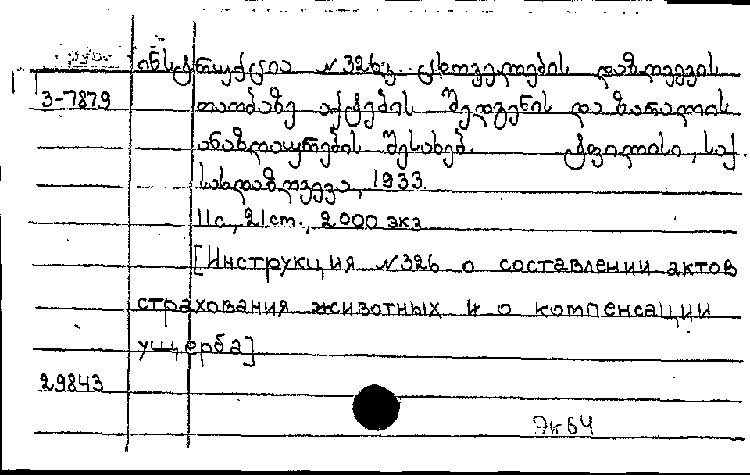 ინსტრუქცია №326ბ. ცხოველების დაზღვევის
3-7879 თაობაზე აქტების შედგენის და ზარალის
ანაზღაურების შესახებ. ტფილისი, საქ.
სახდაზღვევა, 1933.
11с., 21cm., 2000 экз
[Инструкция №326 о составлении актов
страхования животных и о компенсации
ущерба]
29843
Эк64